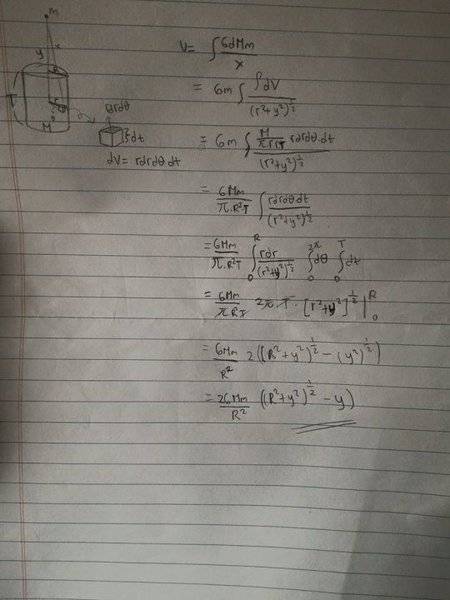 m
y
x
R
T
M
rdθ
dr
dt
dV = rdrdθdt
V = ∫ GdMm / x
= Gm ∫ ρdV / (r²+y²)^½
= Gm ∫ M/πR²T rdrdθ.dt / (r²+y²)^½
= GMm / π.R²T ∫ rdrdθdt / (r²+y²)^½
= GMm / π.R²T ∫₀ᴿ rdr / (r²+y²)^½ ∫₀^2π dθ ∫₀ᵀ dt
= GMm / πR²T 2π.T. [r²+y²]^½ |₀ᴿ
= GMm / R² 2((R²+y²)^½ - (y²)^½)
= 2GMm / R² ((R²+y²)^½ - y)